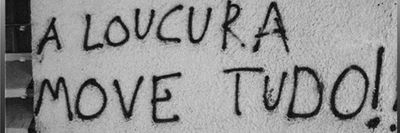 A LOUCURA
MOVE TUDO!